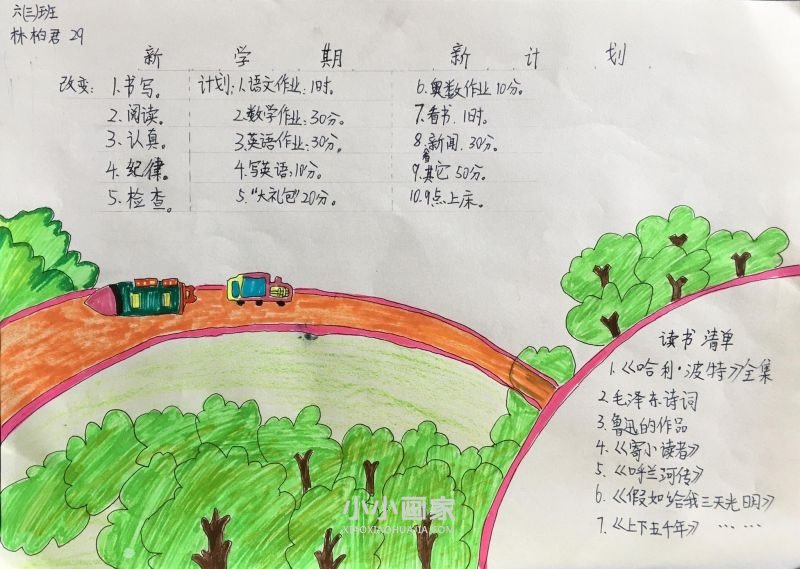 六(三)班
林柏君 29
新学期新计划
改变: 1.书写。
2.阅读。
3.认真。
4.纪律。
5.检查。
计划: 1.语文作业:1时。
2.数学作业:30分。
3.英语作业:30分。
4.写英语:10分。
5."大礼包"20分。
6.奥数作业10分。
7.看书.1时。
8.新闻.30分。
9.其它50分。
10.9点上床。
读书清单
1.《哈利·波特》全集
2.毛泽东诗词
3.鲁迅的作品
4.《寄小读者》
5.《呼兰河传》
6.《假如给我三天光明》
7.《上下五千年》……
小小画家
XIAOXIAOHUAJIA.COM